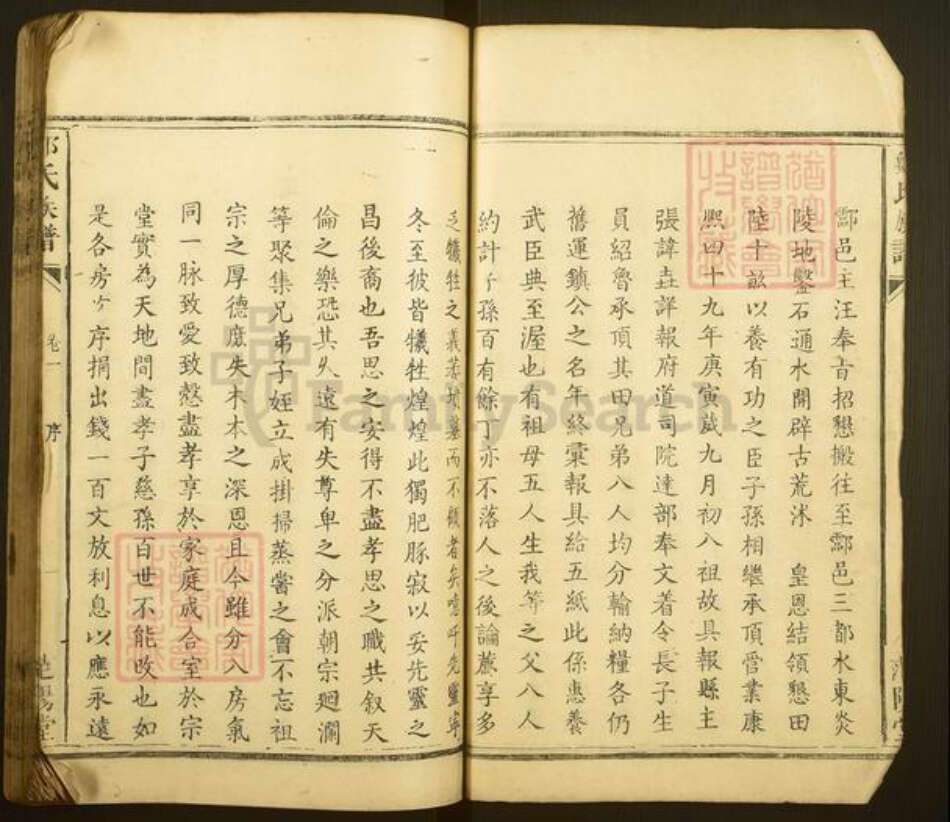 酃邑主汪奉旨招懇搬往至酃邑三都水東炎
陵地鑿石通水開辟古荒沐　皇恩結領懇田
陸十畝以養有功之臣子孫相繼承頂管業康
熙四十九年庚寅歲九月初八祖故具報縣主
張諱垚詳報府道司院達部奉文著令長子生
員紹魯承頂其田兄弟八人均分輸納糧各仍
舊運鎮公之名年終彙報具給五紙此係惠養
武臣典至渥也有祖母五人生我等之父八人
約計子孫百有餘丁亦不落人之後論蒸享多
乏犧牲之義墳墓而不顧者矣噫吁先靈
冬至彼皆犧牲煌煌此獨肥豚寂以妥先靈之
昌後裔也吾思之安得不盡孝思之職共叙天
倫之樂恐其久遠有失尊卑之分派朝宗廻瀾
等聚集兄弟子姪立成掛掃蒸嘗之會不忘祖
宗之厚德應失木本之深恩且今雖分入房氣
同一脉致愛致慤盡孝享於家庭成合室於宗
堂實為天地間盡孝子慈孫百世不能改也如
是各房序捐出錢一百文放利息以應永遠
氏族譜
卷一
序
FamilySearch